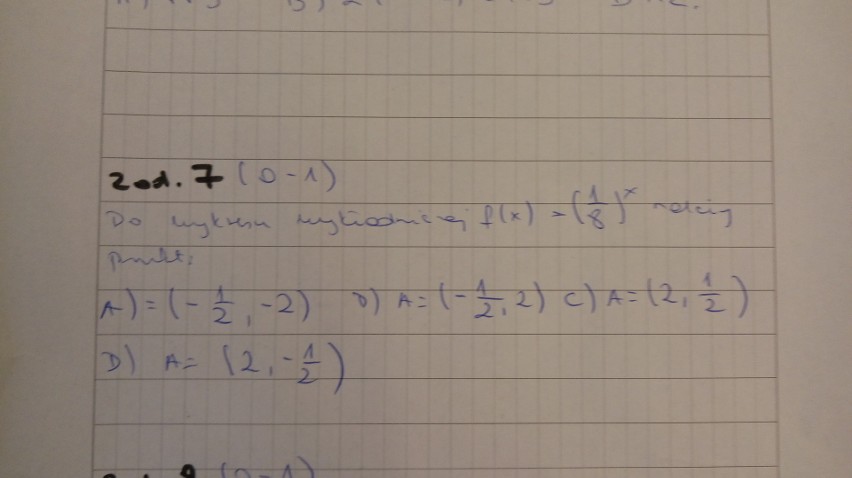 zad. 7 (0-1)
Do wykresu wykładniczej f(x) = (1/8)^x należy
punkt:
A) = (-1/2, -2) B) A = (-1/2, 2) C) A = (2, 1/2)
D) A = (2, -1/2)
(0-1)